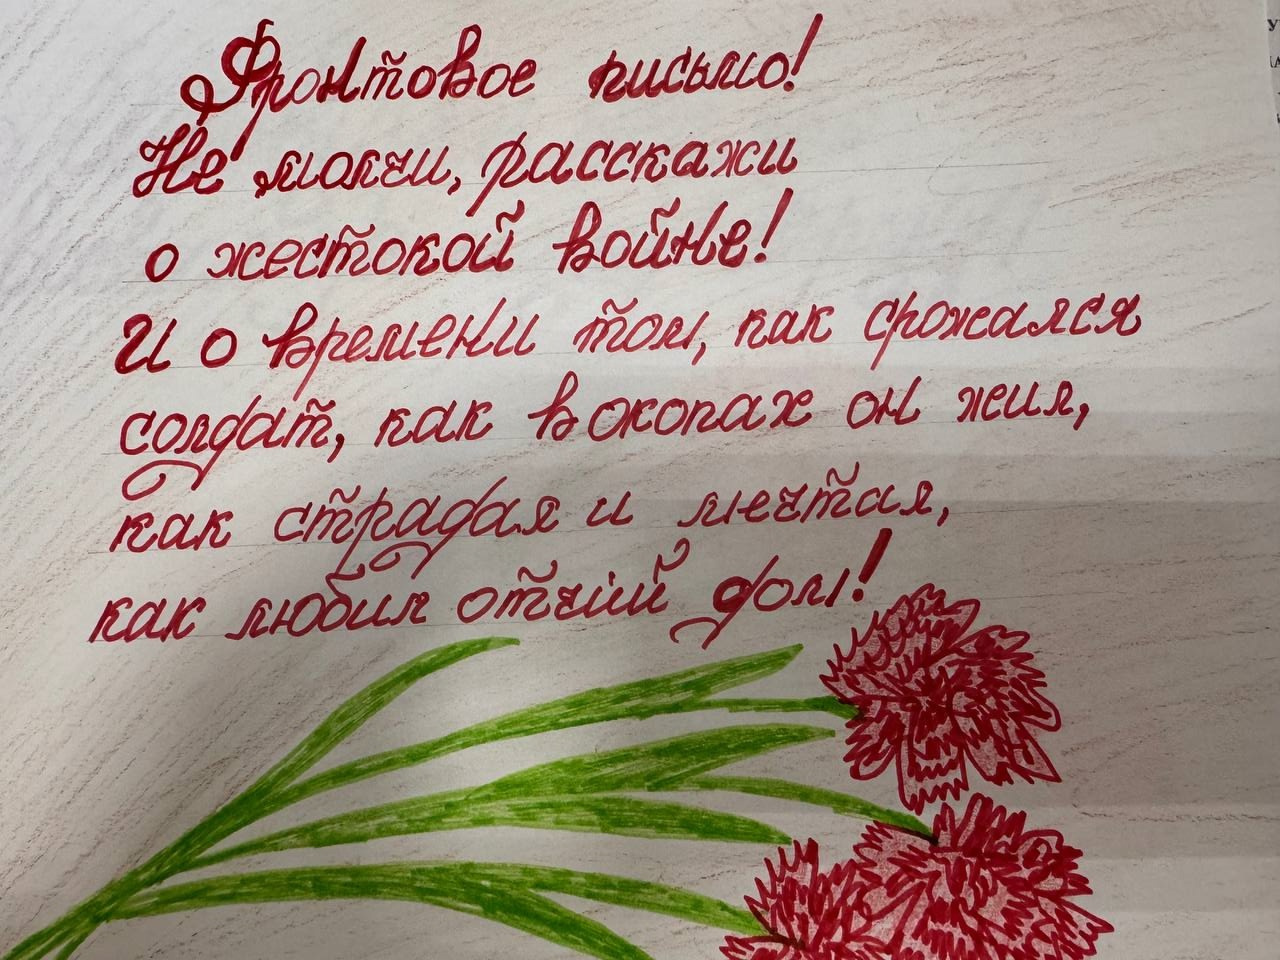 Фронтовое письмо!
Не молчи, расскажи
о жестокой войне!
И о времени том, как срожался
солдат, как в окопах он жил,
как страдал и мечтал,
как любил отчий дом!